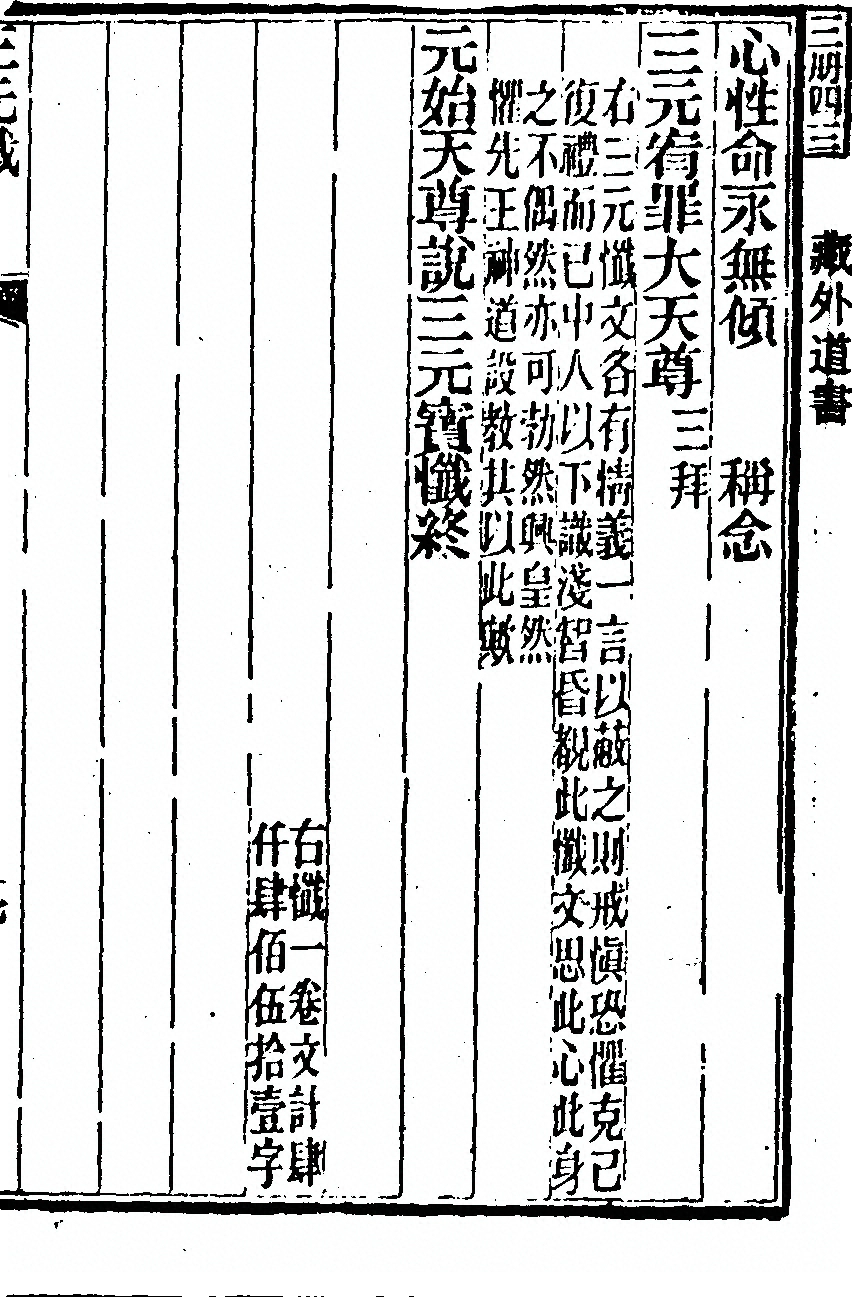 三册四三
藏外道書
心性命永無傾 稱念
三元宥罪大天尊 三拜
右三元懺文各有精義一言以蔽之則戒慎恐懼克己
復禮而已中人以下識淺智昏覩此懺文思此心此身
之不偶然亦可勃然興皇然
懼先王神道設教其以此歟
元始天尊說三元寶懺終
右懺一卷文計肆
仟肆佰伍拾壹字
三元懺